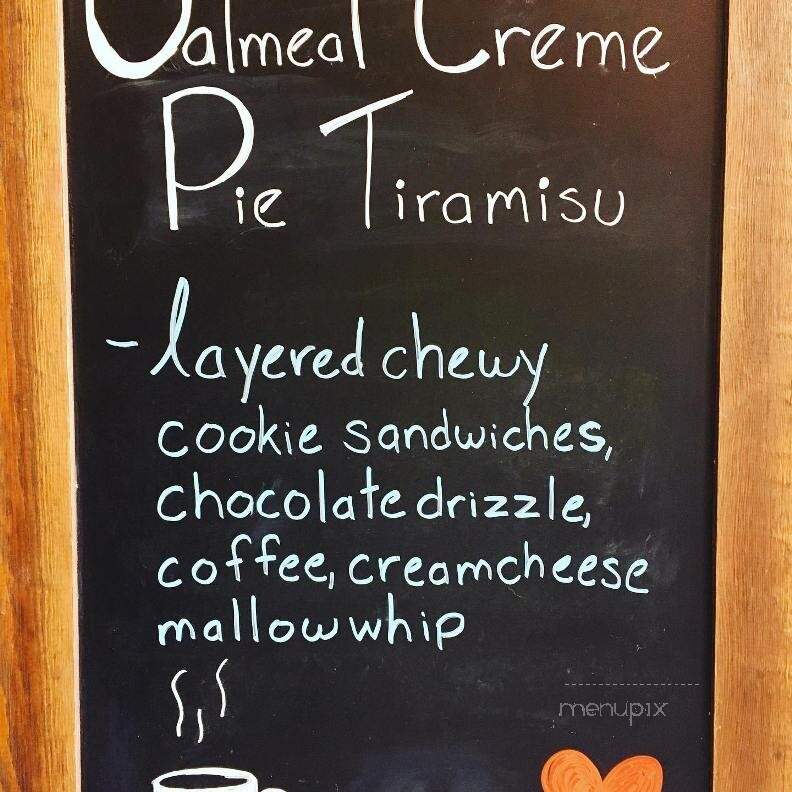 Oatmeal Creme
Pie Tiramisu
- layered chewy
cookie sandwiches,
chocolate drizzle,
coffee, creamcheese
mallow whip
menupix